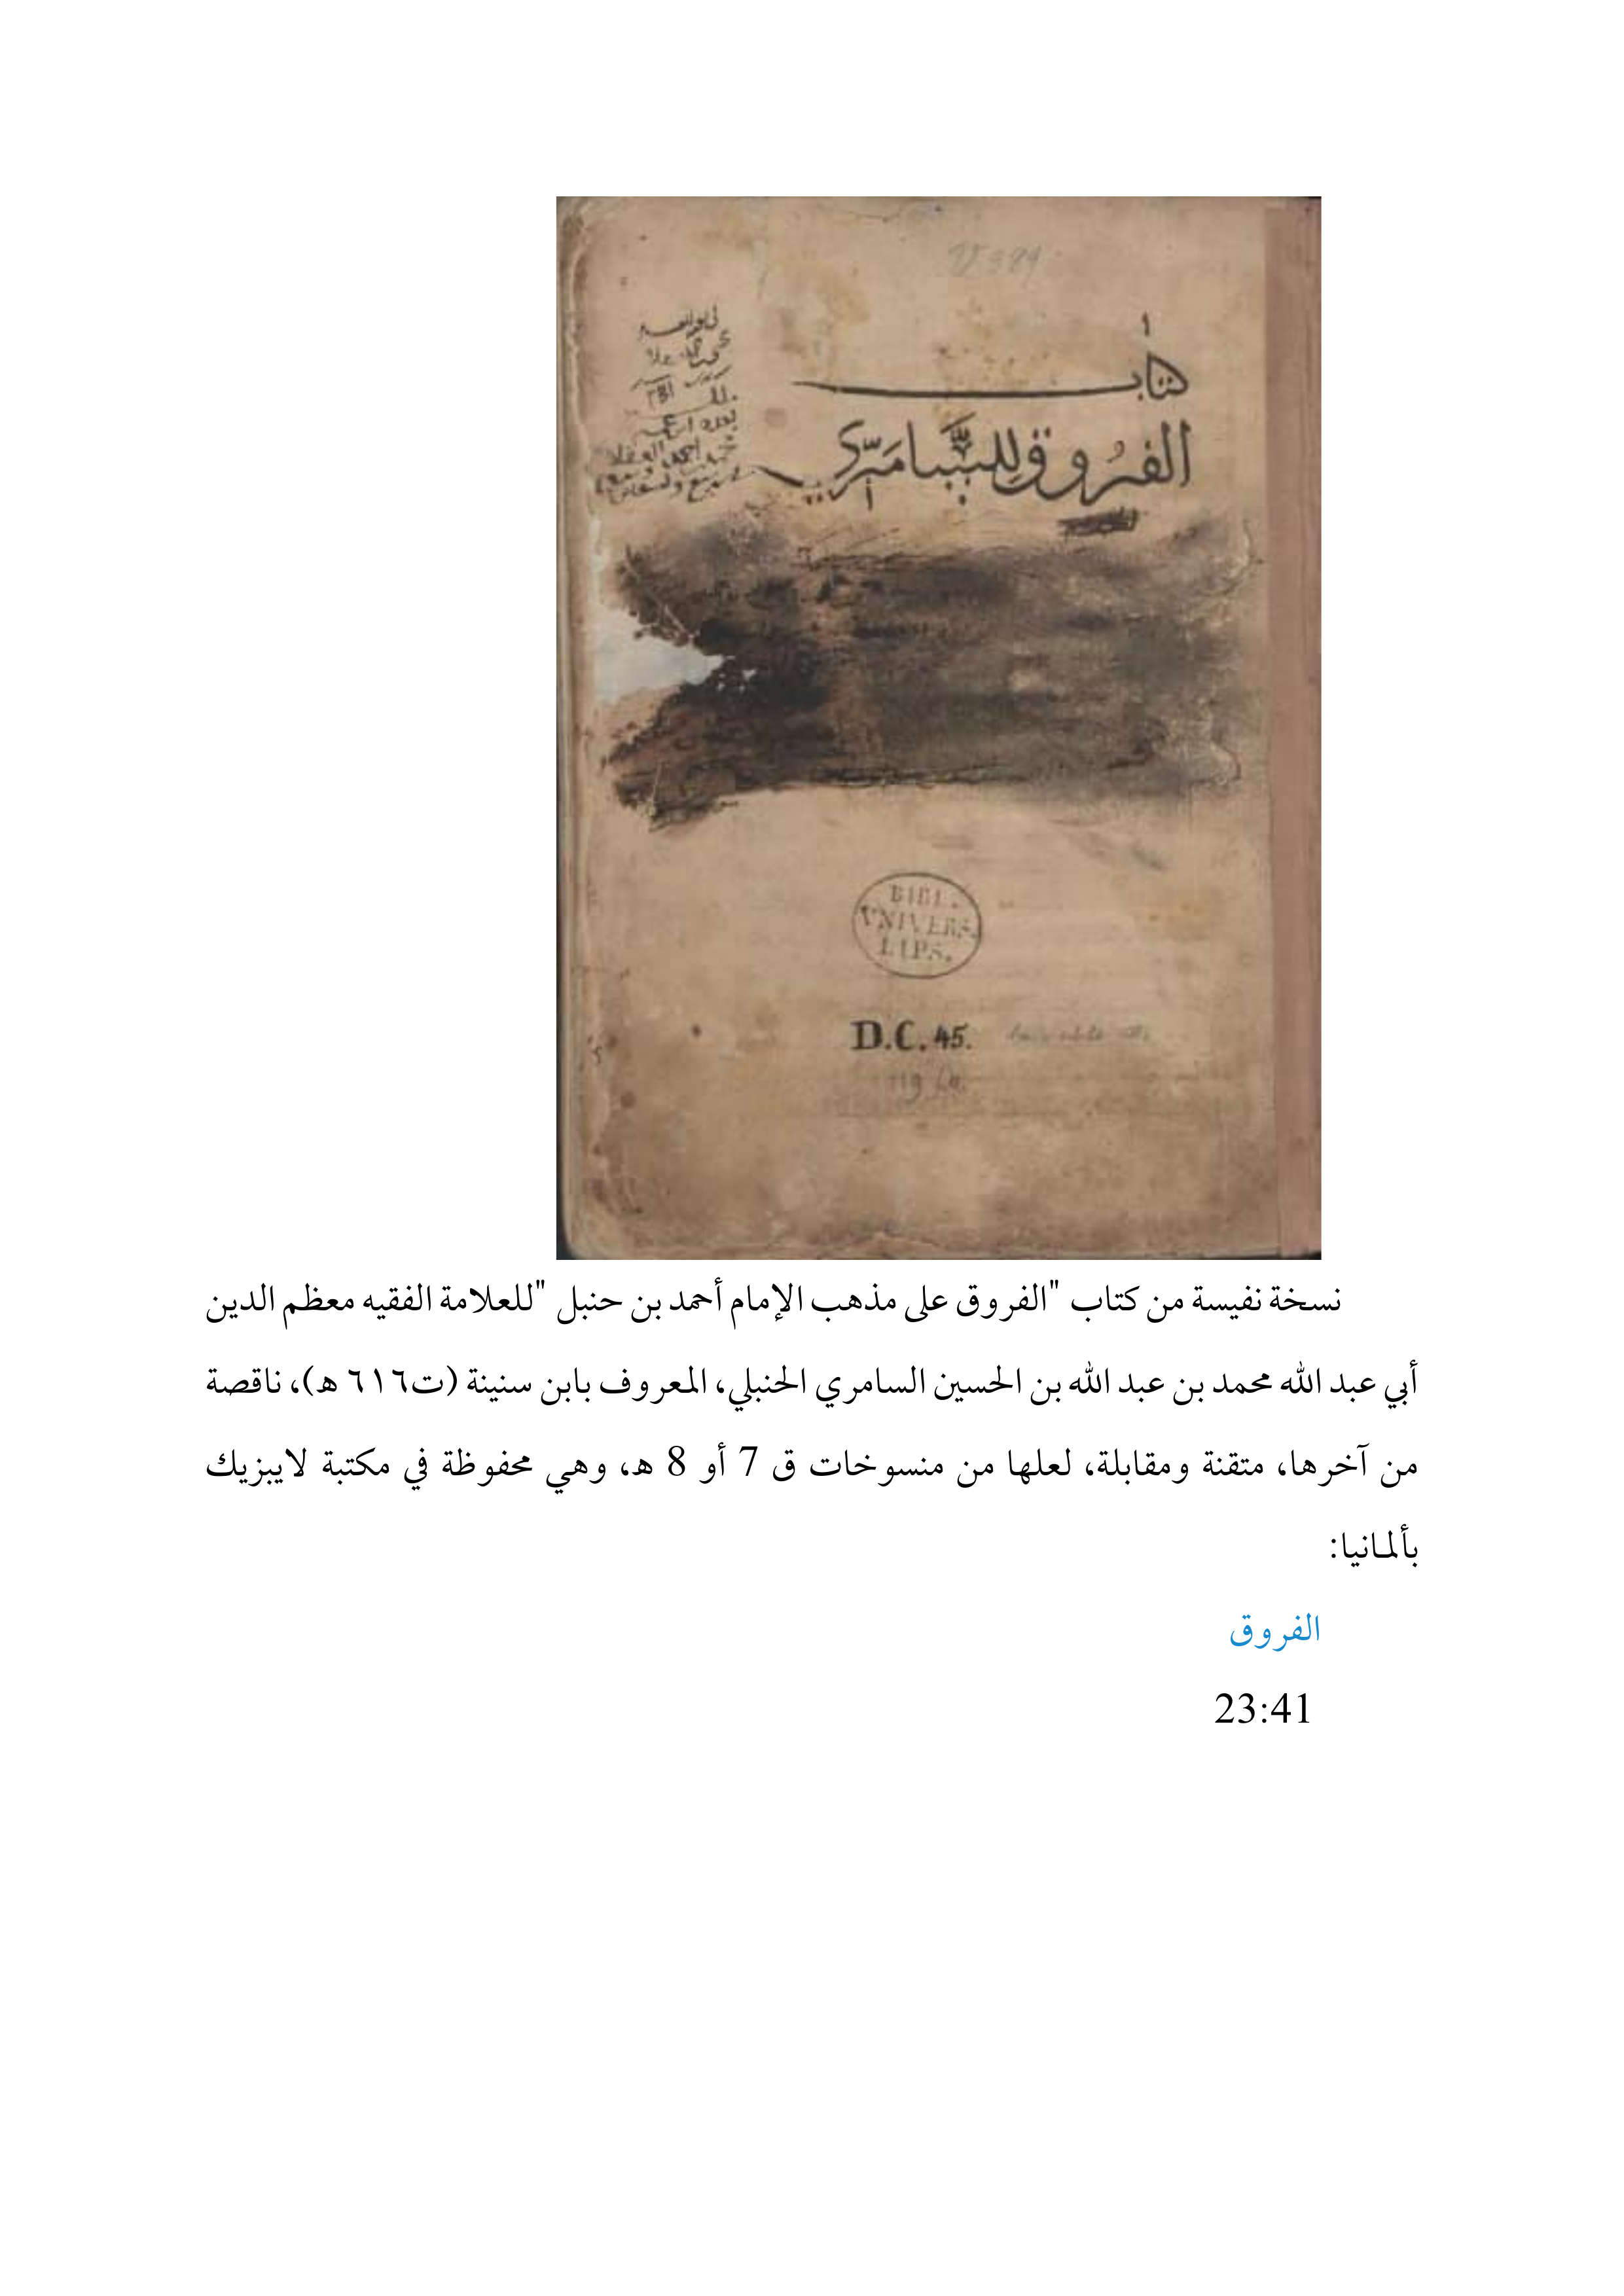 كتاب
الفُروق للسَّامَرّي
BIBL.
VNIVERS.
LIPS.
D.C. 45.
نسخة نفيسة من كتاب "الفروق على مذهب الإمام أحمد بن حنبل "للعلامة الفقيه معظم الدين
أبي عبد الله محمد بن عبد الله بن الحسين السامري الحنبلي، المعروف بابن سنينة (ت٦١٦ هـ)، ناقصة
من آخرها، متقنة ومقابلة، لعلها من منسوخات ق 7 أو 8 هـ، وهي محفوظة في مكتبة لايبزيك
بألمانيا:
الفروق
23:41